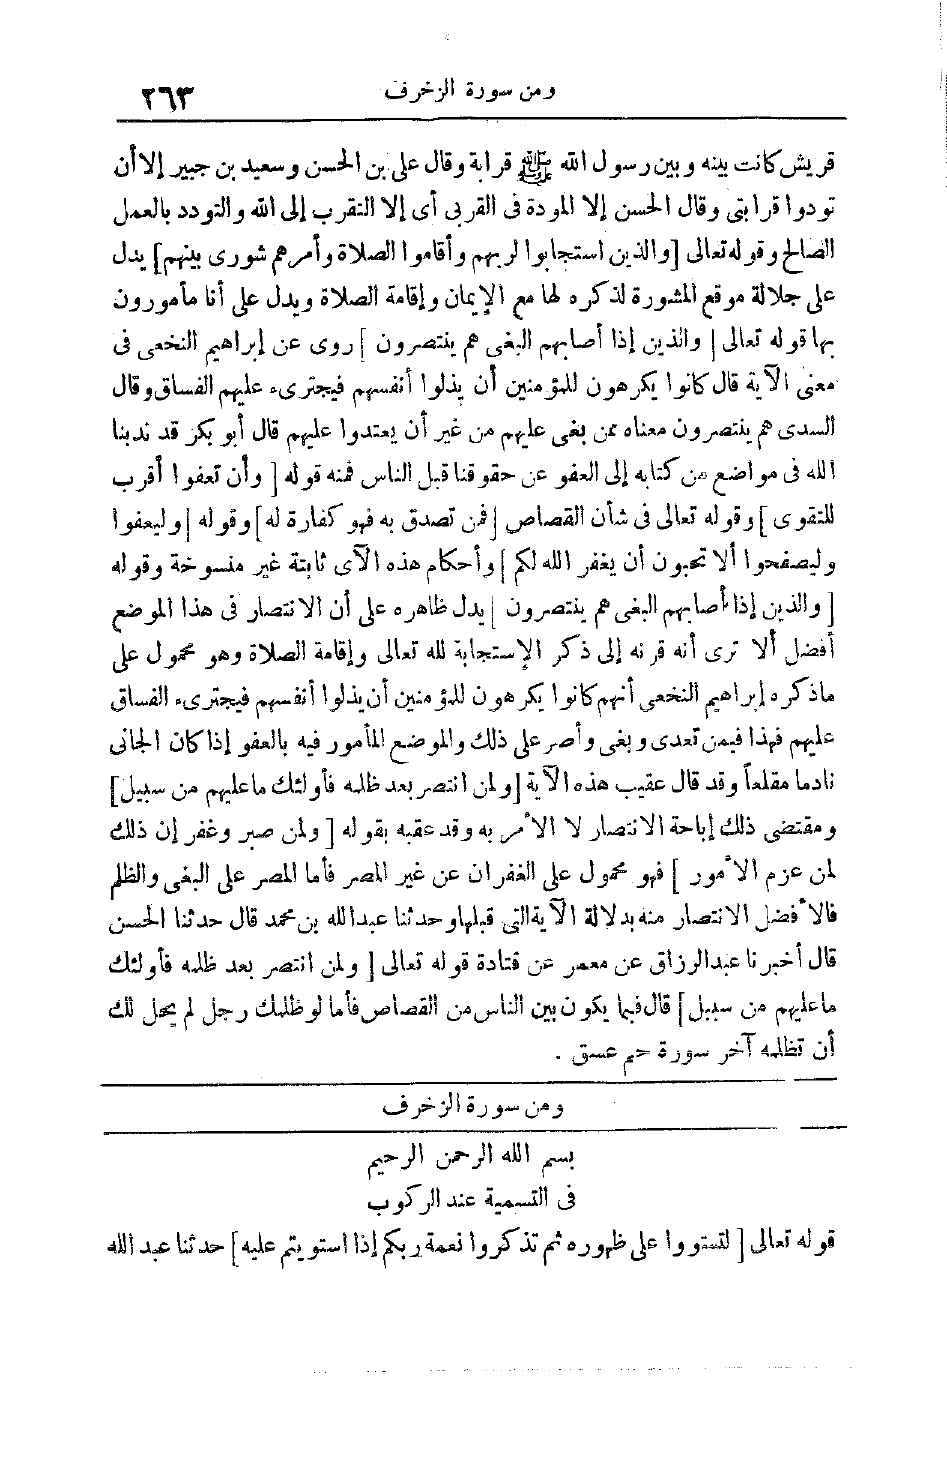 ومن سورة الزخرف ٢٦٣
قريش كانت بينه وبين رسول الله ﷺ قرابة وقال على بن الحسن وسعيد بن جبير إلا أن
تودوا قرابتى وقال الحسن إلا المودة فى القربى أى إلا التقرب إلى الله والتودد بالعمل
الصالح وقوله تعالى [والذين استجابوا لربهم وأقاموا الصلاة وأمرهم شورى بينهم] يدل
على جلالة موقع المشورة لذكره لها مع الإيمان وإقامة الصلاة ويدل على أنا مأمورون
بها قوله تعالى [والذين إذا أصابهم البغى هم ينتصرون] روى عن إبراهيم النخعى فى
معنى الآية قال كانوا يكرهون للمؤمنين أن يذلوا أنفسهم فيجترىء عليهم الفساق وقال
السدى هم ينتصرون معناه ممن بغى عليهم من غير أن يعتدوا عليهم قال أبو بكر قد ندبنا
الله فى مواضع من كتابه إلى العفو عن حقوقنا قبل الناس فمنه قوله [وأن تعفوا أقرب
للتقوى] وقوله تعالى فى شأن القصاص [فمن تصدق به فهو كفارة له] وقوله [وليعفوا
وليصفحوا ألا تحبون أن يغفر الله لكم] وأحكام هذه الآى ثابتة غير منسوخة وقوله
[والذين إذا أصابهم البغى هم ينتصرون] يدل ظاهره على أن الانتصار فى هذا الموضع
أفضل ألا ترى أنه قرنه إلى ذكر الإستجابة لله تعالى وإقامة الصلاة وهو محمول على
ماذكره إبراهيم النخعى أنهم كانوا يكرهون للمؤمنين أن يذلوا أنفسهم فيجترىء الفساق
عليهم فهذا فيمن تعدى وبغى وأصر على ذلك والموضع المأمور فيه بالعفو إذا كان الجانى
نادما مقلعاً وقد قال عقيب هذه الآية [ولمن انتصر بعد ظلمه فأولئك ماعليهم من سبيل]
ومقتضى ذلك إباحة الانتصار لا الأمر به وقد عقبه بقوله [ولمن صبر وغفر إن ذلك
لمن عزم الأمور] فهو محمول على الغفران عن غير المصر فأما المصر على البغى والظلم
فالأفضل الانتصار منه بدلالة الآية التى قبلها وحدثنا عبد الله بن محمد قال حدثنا الحسن
قال أخبرنا عبد الرزاق عن معمر عن قتادة قوله تعالى [ولمن انتصر بعد ظلمه فأولئك
ماعليهم من سبيل] قال فيما يكون بين الناس من القصاص فأما لو ظلمك رجل لم يحل لك
أن تظلمه آخر سورة حم عسق .
ومن سورة الزخرف
بسم الله الرحمن الرحيم
فى التسمية عند الركوب
قوله تعالى [لتستووا على ظهوره ثم تذكروا نعمة ربكم إذا استويتم عليه] حدثنا عبد الله